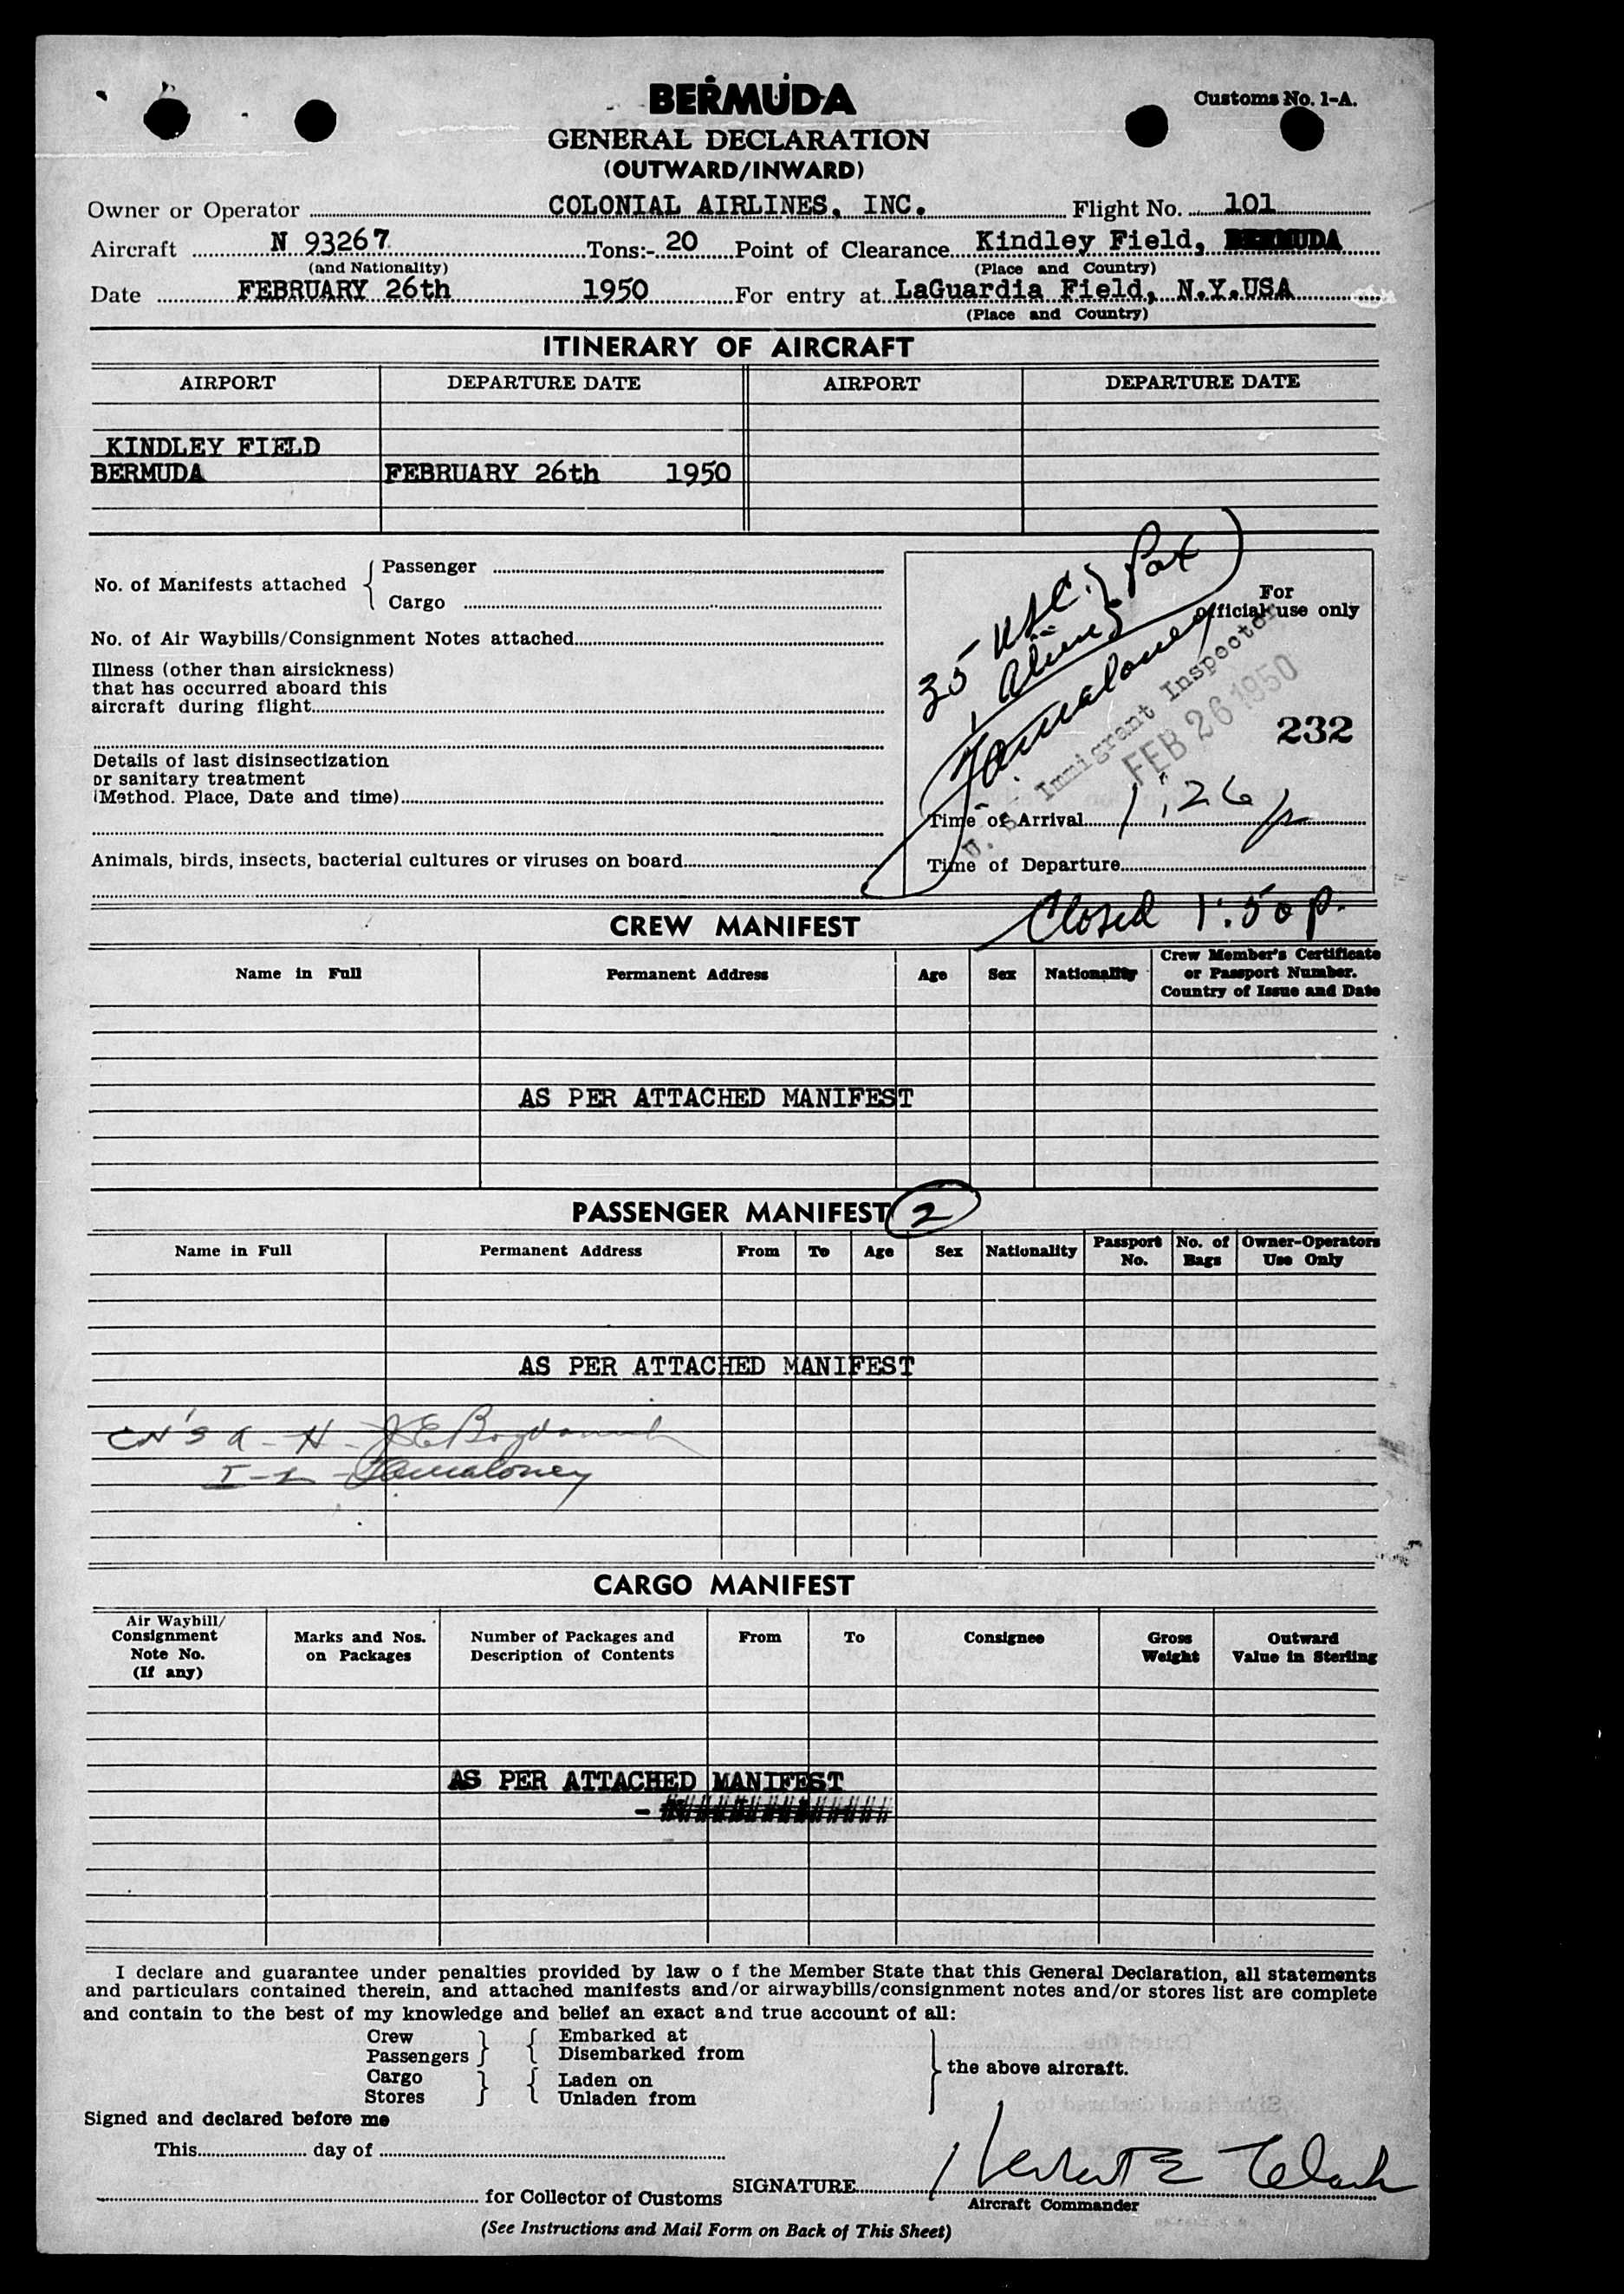 BERMUDA
Customs No. 1-A.
GENERAL DECLARATION
(OUTWARD/INWARD)
Owner or Operator COLONIAL AIRLINES, INC. Flight No. 101
Aircraft N 93267 Tons:- 20 Point of Clearance Kindley Field, BERMUDA
(and Nationality) (Place and Country)
Date FEBRUARY 26th 1950 For entry at LaGuardia Field, N.Y.USA
(Place and Country)
ITINERARY OF AIRCRAFT
AIRPORT DEPARTURE DATE AIRPORT DEPARTURE DATE
KINDLEY FIELD
BERMUDA FEBRUARY 26th 1950
No. of Manifests attached { Passenger
Cargo
No. of Air Waybills/Consignment Notes attached
Illness (other than airsickness)
that has occurred aboard this
aircraft during flight
Details of last disinsectization
or sanitary treatment
(Method. Place, Date and time)
Animals, birds, insects, bacterial cultures or viruses on board
For
official use only
35 USC } Pax
1 Alien
Maloney
U. S. Immigrant Inspector
FEB 26 1950
232
Time of Arrival 1:26 p
Time of Departure
Closed 1:50 p.
CREW MANIFEST
Name in Full Permanent Address Age Sex Nationality Crew Member's Certificate
or Passport Number.
Country of Issue and Date
AS PER ATTACHED MANIFEST
PASSENGER MANIFEST 2
Name in Full Permanent Address From To Age Sex Nationality Passport No. No. of Bags Owner-Operators Use Only
AS PER ATTACHED MANIFEST
CN's A - H - J E
I - Z - Maloney
CARGO MANIFEST
Air Waybill/
Consignment
Note No.
(If any)
Marks and Nos.
on Packages
Number of Packages and
Description of Contents
From To Consignee
Gross
Weight
Outward
Value in Sterling
AS PER ATTACHED MANIFEST
I declare and guarantee under penalties provided by law o f the Member State that this General Declaration, all statements
and particulars contained therein, and attached manifests and/or airwaybills/consignment notes and/or stores list are complete
and contain to the best of my knowledge and belief an exact and true account of all:
Crew } { Embarked at
Passengers } { Disembarked from
Cargo } { Laden on
Stores } { Unladen from
} the above aircraft.
Signed and declared before me
This day of
for Collector of Customs
SIGNATURE Herbert E Clark
Aircraft Commander
(See Instructions and Mail Form on Back of This Sheet)